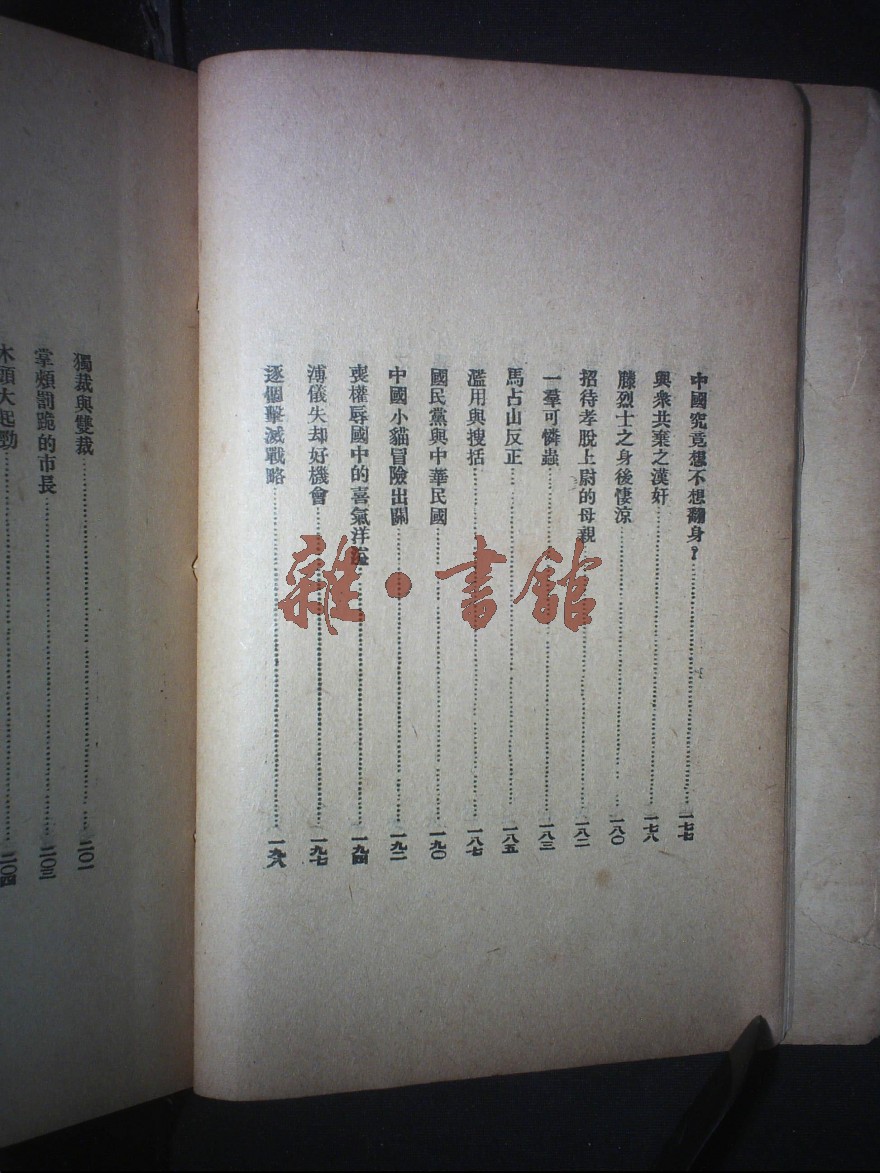 中國究竟想不想翻身？……一七七
與衆共棄之漢奸……一七八
滕烈士之身後悽涼……一八〇
招待孝脫上尉的母親……一八二
一羣可憐蟲……一八三
馬占山反正……一八五
濫用與搜括……一八七
國民黨與中華民國……一九〇
中國小貓冒險出關……一九二
喪權辱國中的喜氣洋溢……一九四
溥儀失却好機會……一九七
逐個擊滅戰略……一九八
獨裁與雙裁……二〇一
掌頰罰跪的市長……二〇三
木頭大起勁……二〇四
雜·書館